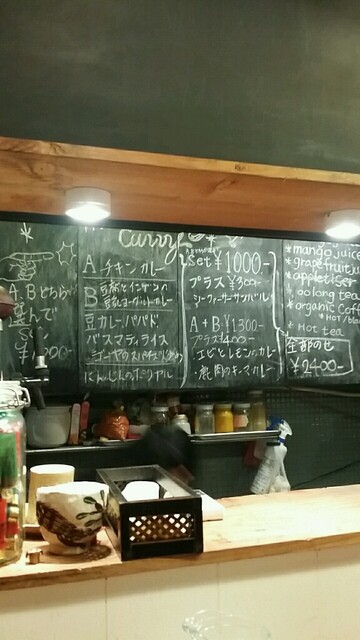 A,Bどちらか
んで
Curry
A チキンカレー
B 豆腐とインゲンの
豆乳ヨーグルトカレー
豆カレー、パパド
バスマティライス
にんじんのポリヤル
Set ¥1000-
プラス ¥300-
シーフードサンバル
A + B ¥1300-
プラス ¥400-
・エビとレモンのカレー
・鹿肉のキーマカレー
* mango juice
* grapefruit
* appetiser
* oolong tea
* organic Coff
* Hot tea
全部のせ
¥2400-